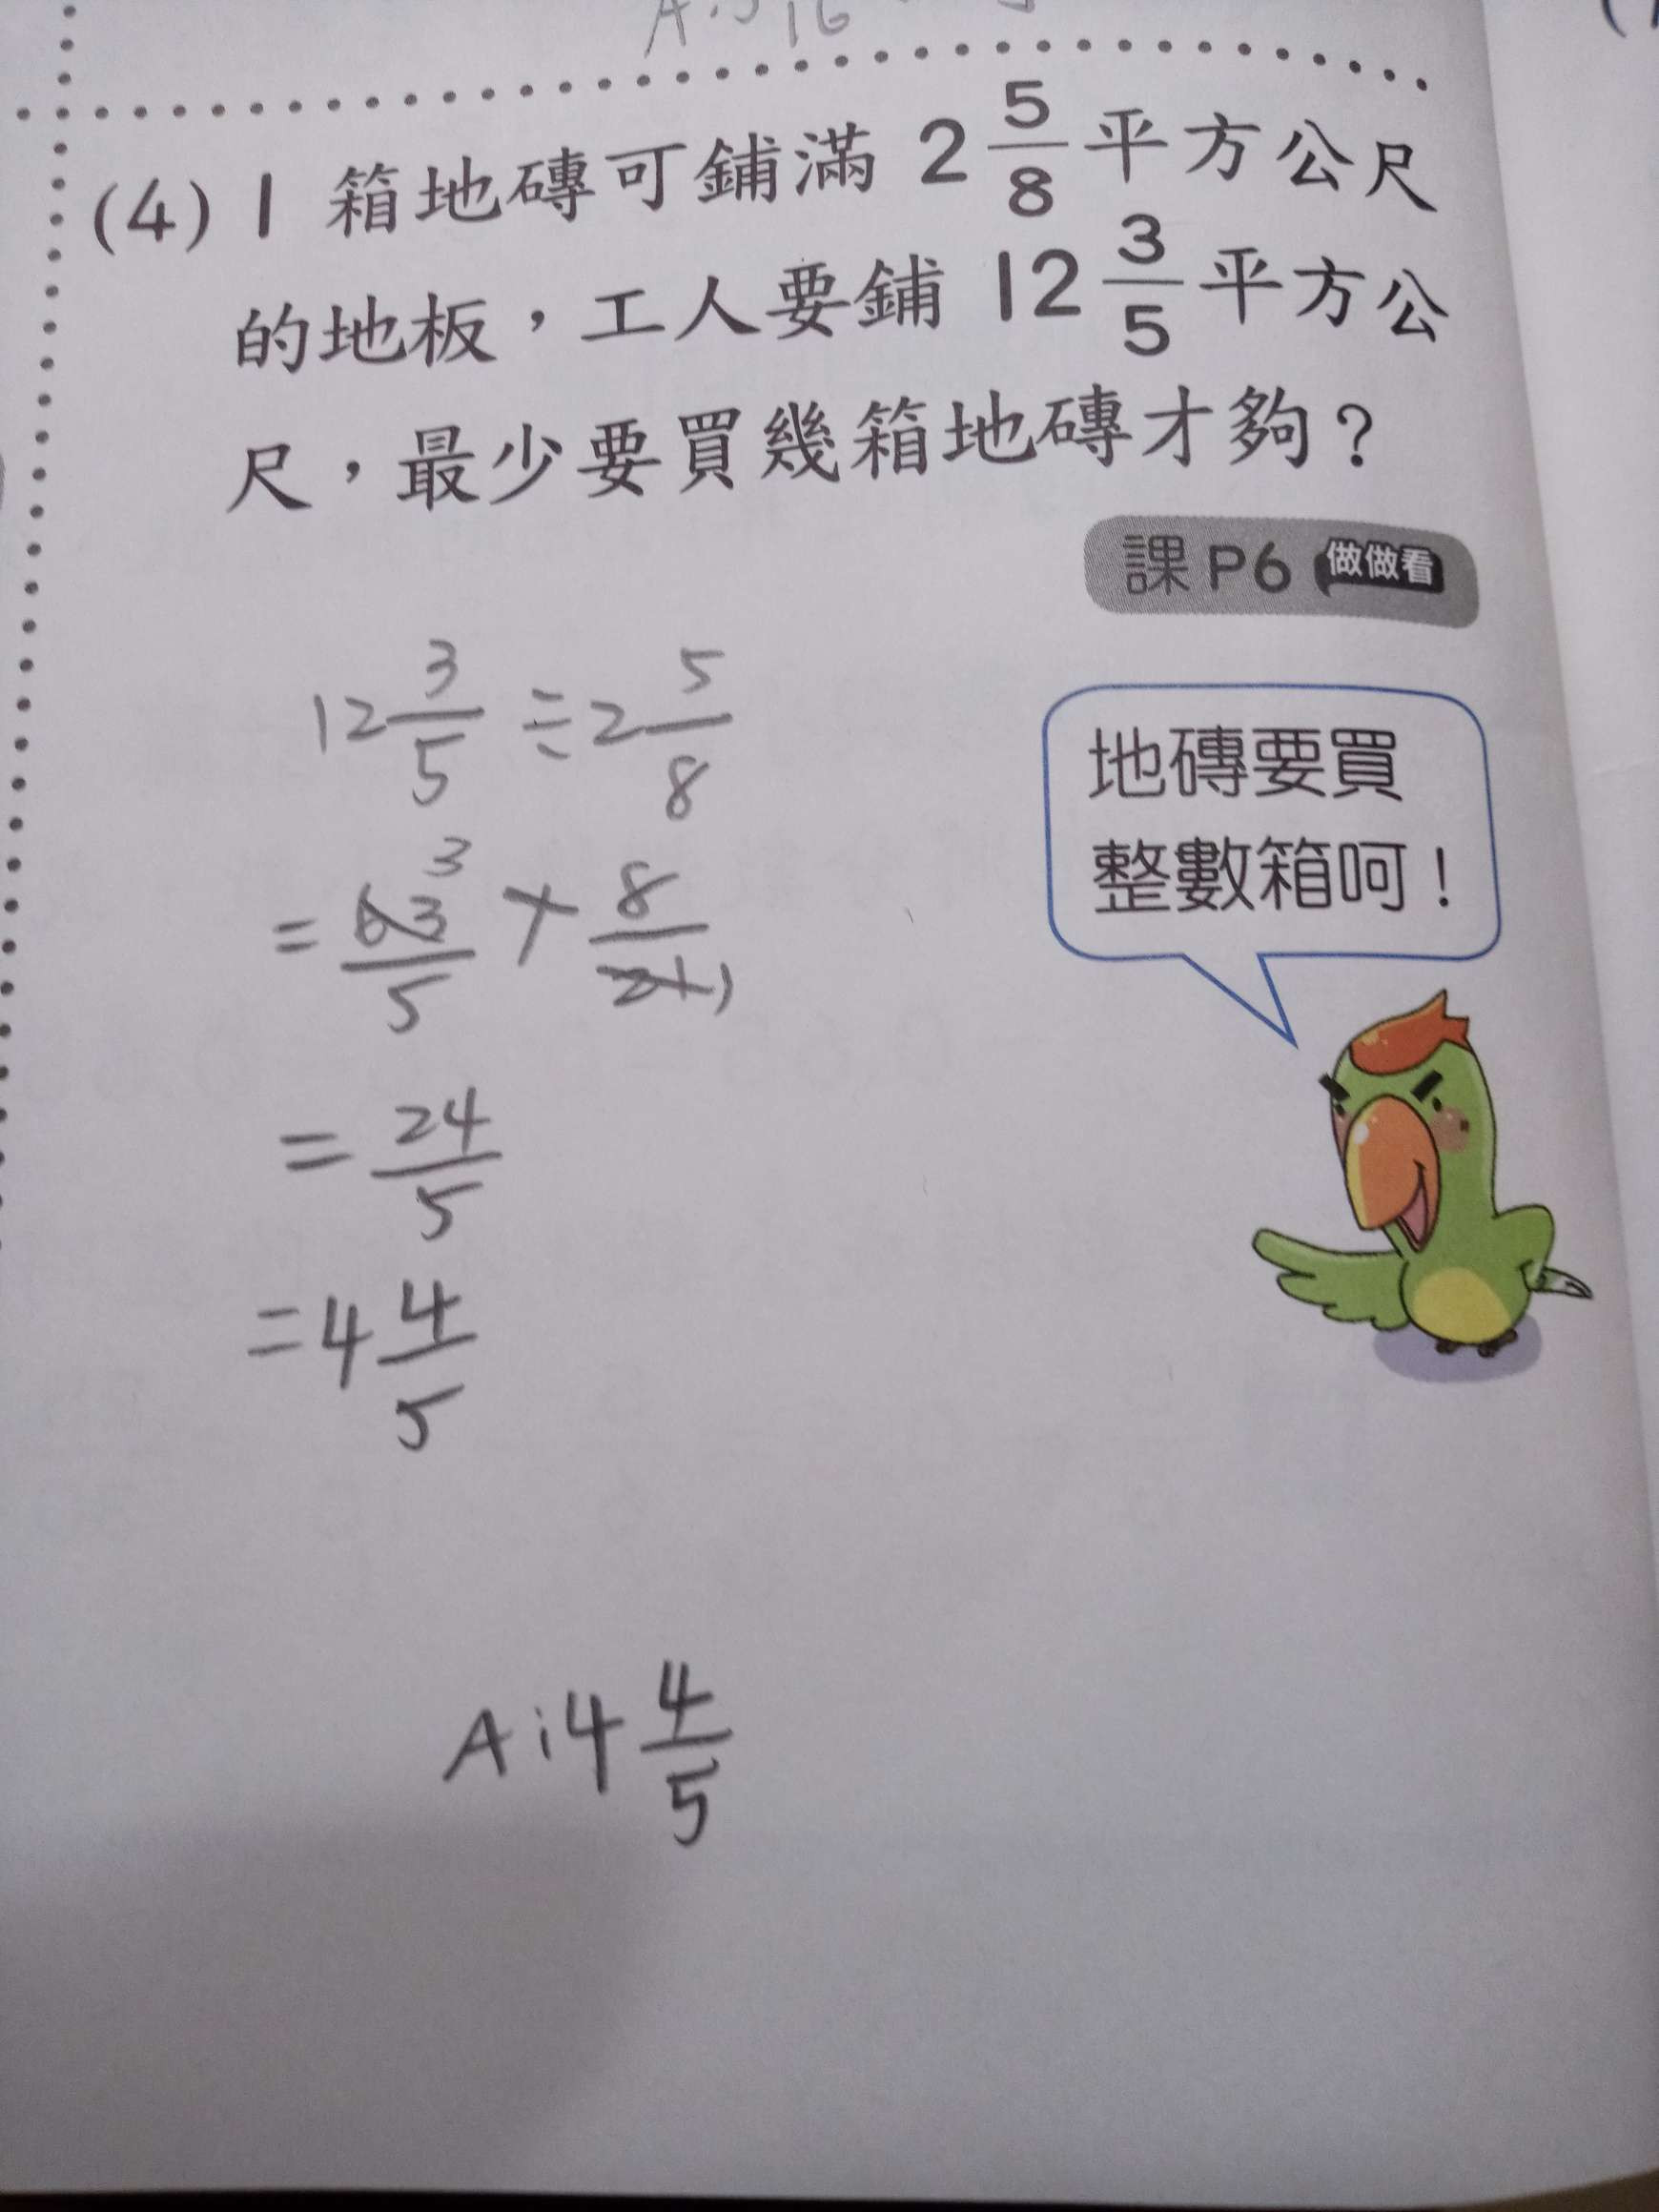 (4) 1 箱地磚可鋪滿 2 5/8 平方公尺
的地板，工人要鋪 12 3/5 平方公
尺，最少要買幾箱地磚才夠？
課 P6 做做看
12 3/5 ÷ 2 5/8
= 63/5 3 × 8/21 1
= 24/5
= 4 4/5
地磚要買
整數箱呵！
A: 4 4/5